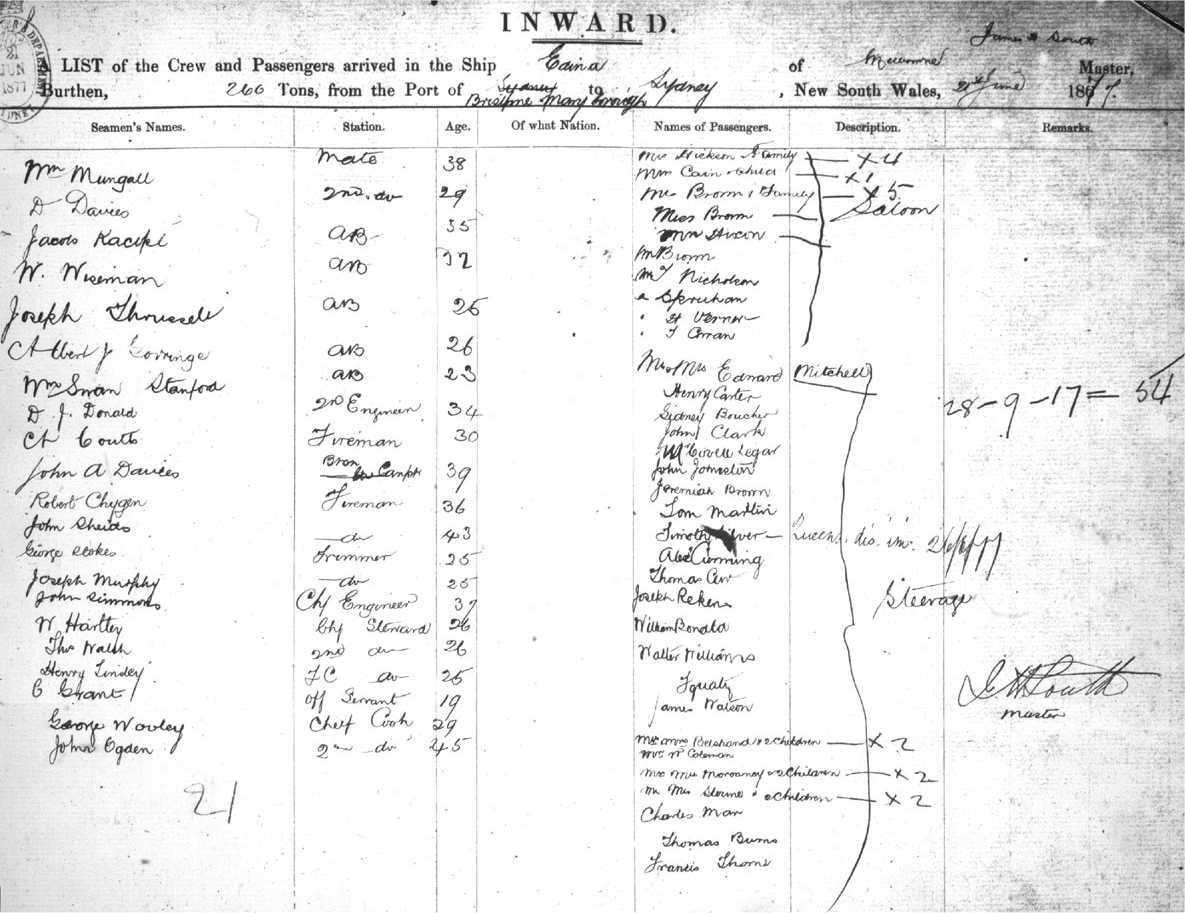 INWARD.
James H South
A LIST of the Crew and Passengers arrived in the Ship Caina of Melbourne Master,
Burthen, 266 Tons, from the Port of Sydney to Sydney, New South Wales, 21st June 1877.
Brisbane Maryborough
Seamen's Names. Station. Age. Of what Nation. Names of Passengers. Description. Remarks.
Wm Mungall Mate 38 Mrs Dickson & Family × 4
Mrs Cain & Child × 1
D Davies 2nd do 29 Mrs Brown & Family × 5
Miss Brown Saloon
Jacob AB 35
W. Wiseman AB 32 Mr Brown
Mr Nicholson
Joseph AB 25 Spruhan
Vernor
J Curran
Albert J Gorringe AB 26 Mr & Mrs Edward Mitchell
Wm Swan Stanford AB 23 Henry Carter 28 - 9 - 17 = 54
D. J. Donald 2nd Engineer 34 Sidney Boucher
Ch Coutts Fireman 30 John Clark
Legar
John A Davies 39 John Johnston
Jeremiah Brown
Robert Fireman 36 Tom Martin
John Shields do 43 Queens. dis. inv. 26/6/77
George Stokes Trimmer 25 Alex Cumming
Joseph Murphy do 25 Thomas
John Simmons Chf Engineer 37 Joseph Rekens Steerage
W. Hartley Chf Steward 26 William Donald
Thos Walsh 2nd do 26 Walter Williams
Henry Lindey F C do 25
C Grant Off Servant 19 James Watson J H South
George Wooley Chief Cook 29 Master
John Ogden 2nd do 45 & 2 Children × 2
Coleman
& 2 Children × 2
21 & 2 Children × 2
Charles Man
Thomas Burns
Francis Thorne